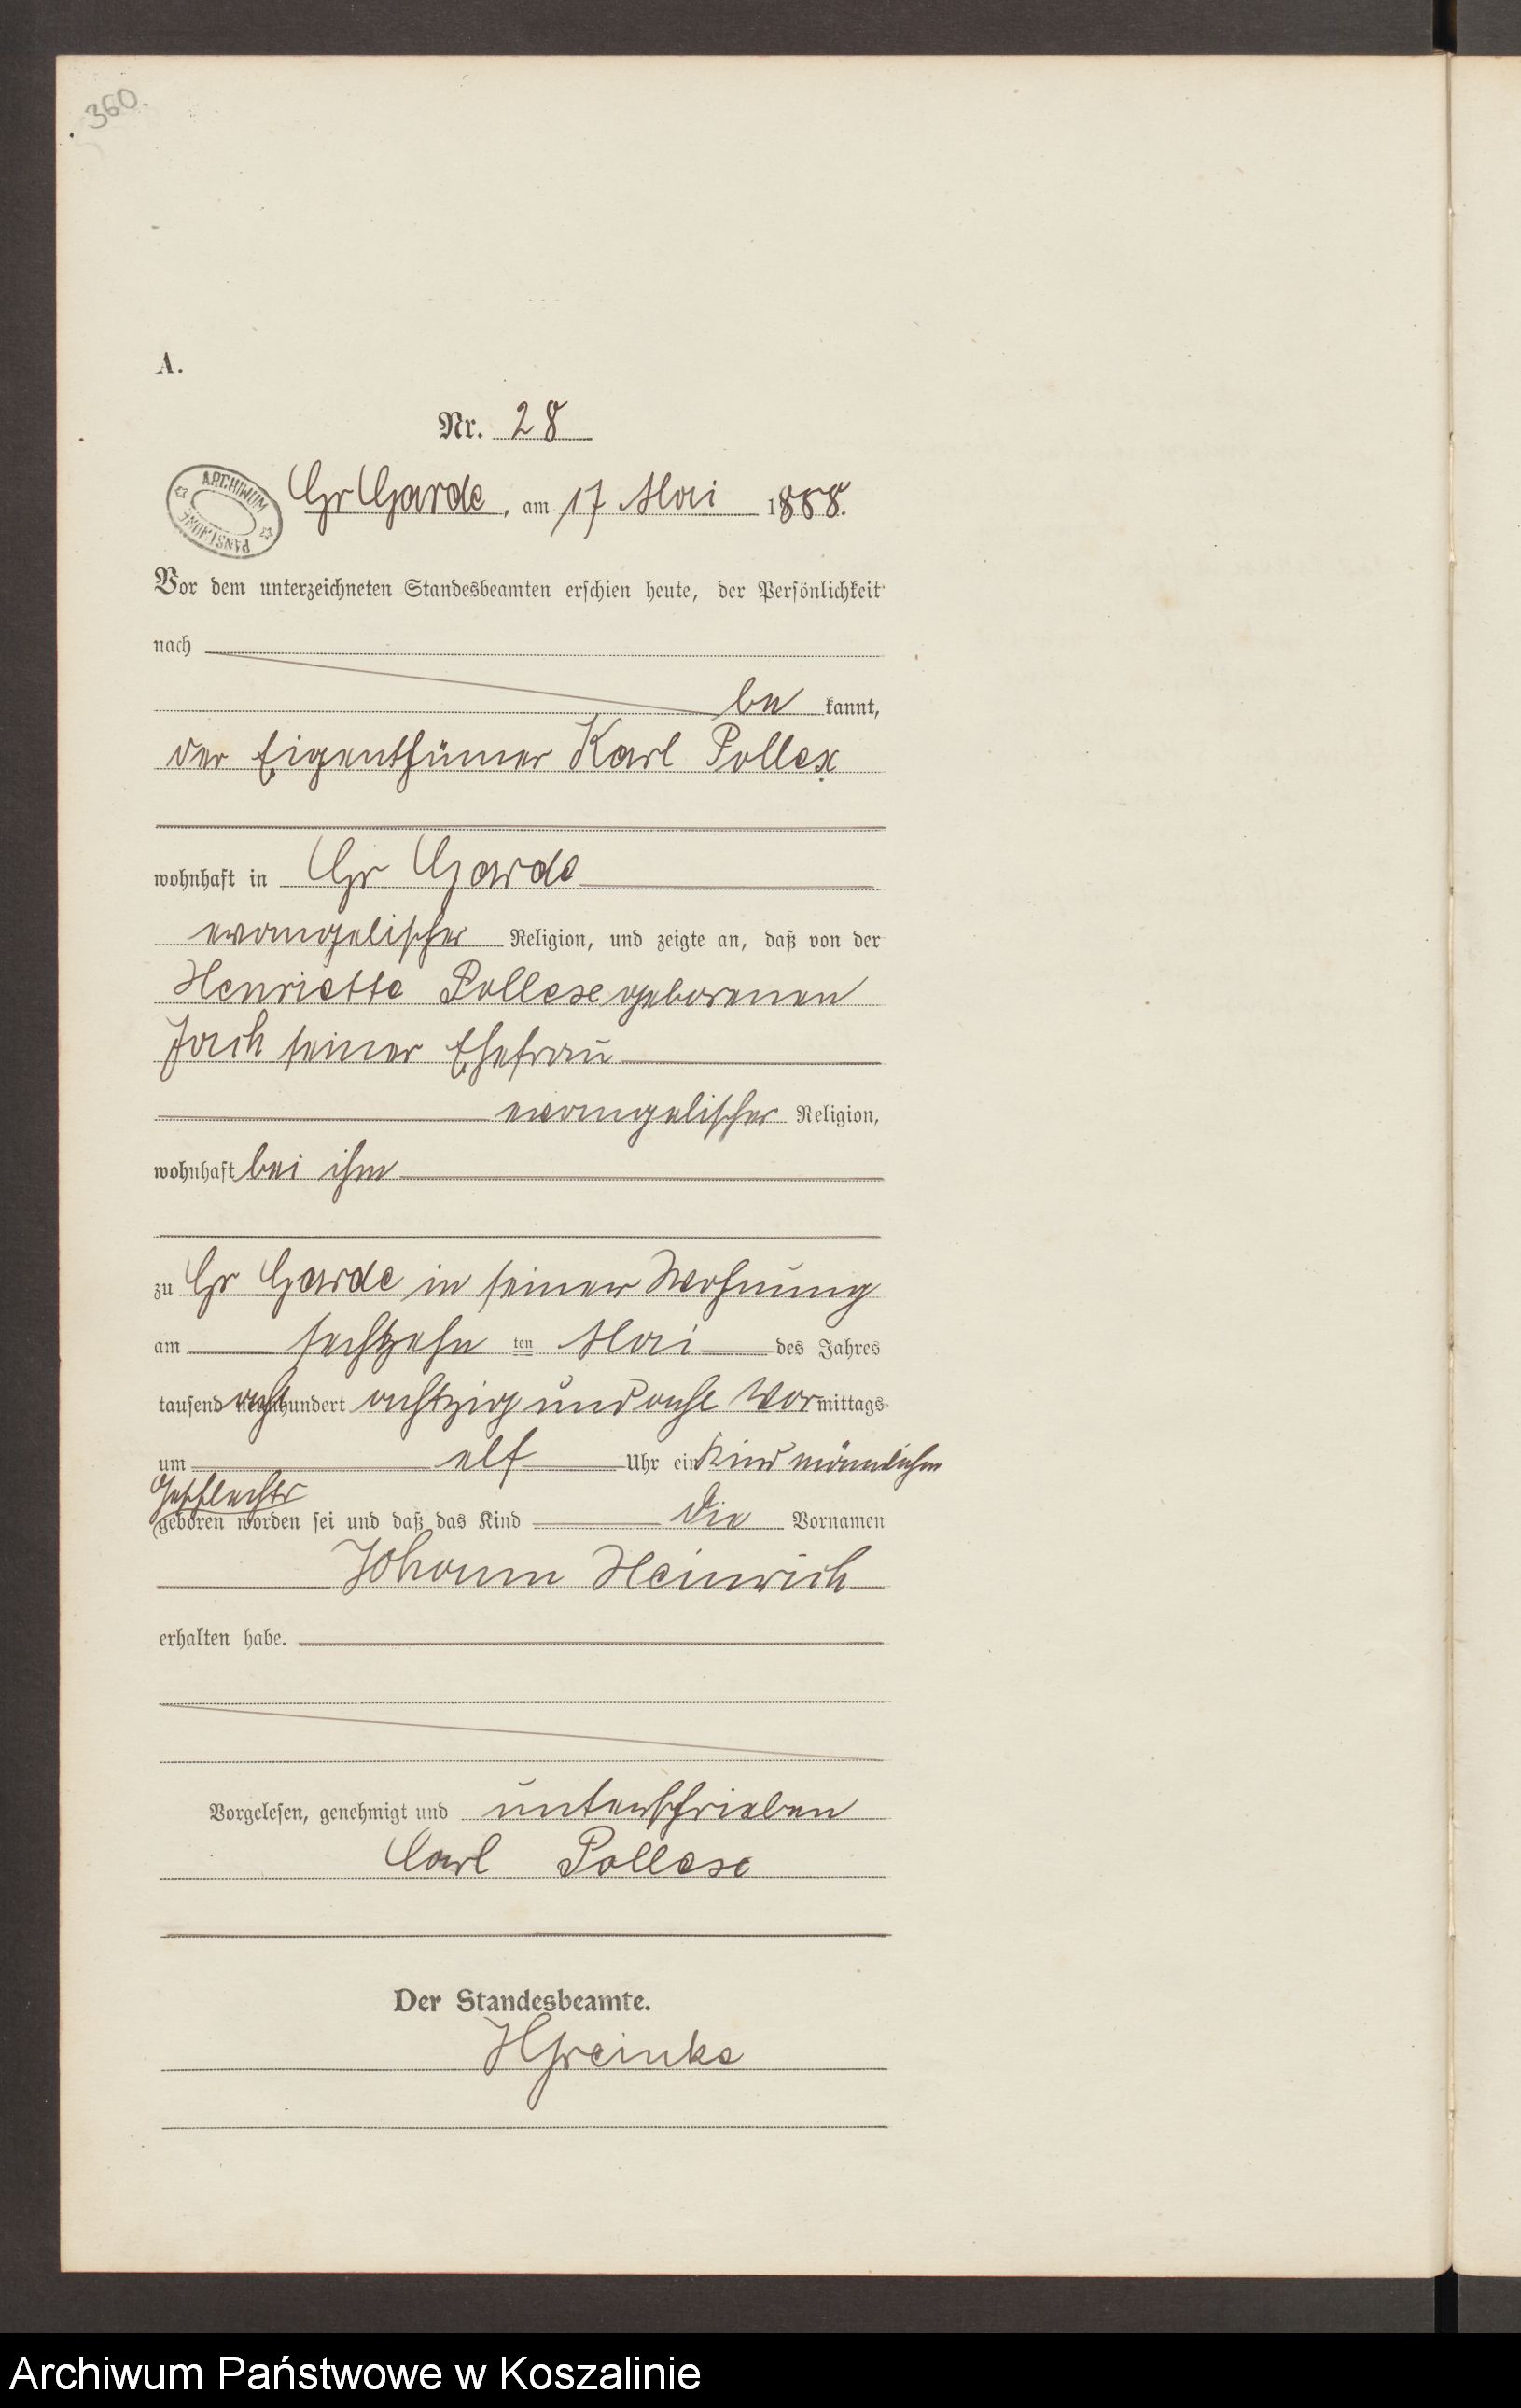 360.
A.
Nr. 28
ARCHIWUM PAŃSTWOWE
Gr Garde, am 17 Mai 1888.
Vor dem unterzeichneten Standesbeamten erschien heute, der Persönlichkeit
nach
be kannt,
der Eigenthümer Karl Pollex
wohnhaft in Gr Garde
evangelischer Religion, und zeigte an, daß von der
Henriette Pollex geborenen
Jach seiner Ehefrau
evangelischer Religion,
wohnhaft bei ihm
zu Gr Garde in seiner Wohnung
am sechzehn ten Mai des Jahres
tausend acht hundert achtzig und acht Vormittags
um elf Uhr ein Kind männlichen
Geschlechts
geboren worden sei und daß das Kind die Vornamen
Johann Heinrich
erhalten habe.
Vorgelesen, genehmigt und unterschrieben
Carl Pollex
Der Standesbeamte.
HGreinke
Archiwum Państwowe w Koszalinie